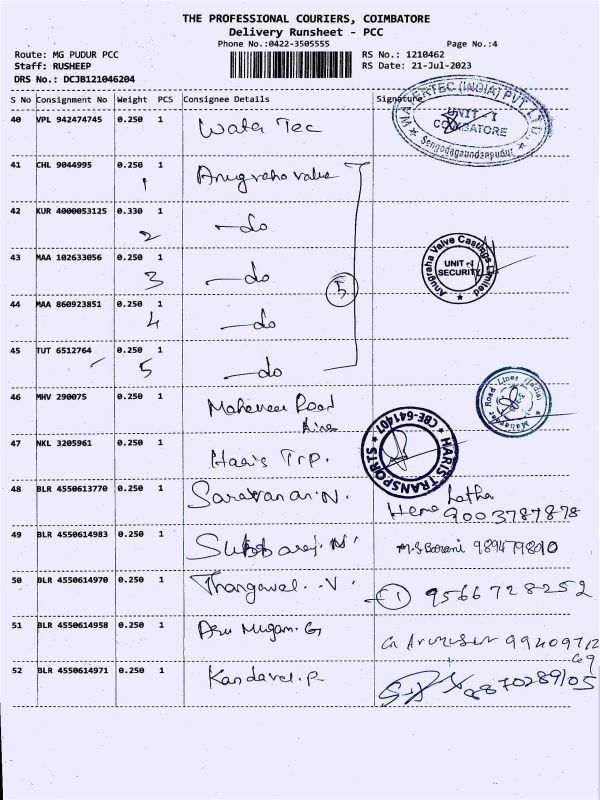 THE PROFESSIONAL COURIERS, COIMBATORE
Delivery Runsheet - PCC
Phone No.:0422-3505555 Page No.:4
Route: MG PUDUR PCC RS No.: 1210462
Staff: RUSHEEP RS Date: 21-Jul-2023
DRS No.: DCJB121046204
S No Consignment No Weight PCS Consignee Details Signature
40 VPL 942474745 0.250 1 Water Tec
WATERTEC (INDIA) PVT. LTD.
UNIT - I
COIMBATORE
41 CHL 9044995 0.250 1 Anugraha valve
1
42 KUR 4000053125 0.330 1 -do
2
43 MAA 102633056 0.250 1 -do
3
5
Anugraha Valve Castings Limited
UNIT - I
SECURITY
44 MAA 860923851 0.250 1 -do
4
45 TUT 6512764 0.250 1 -do
5
46 MHV 290075 0.250 1 Mahaveer Road
Lines
Road Lines (India)
47 NKL 3205961 0.250 1 Haris Trp.
HARIS TRANSPORTS
CBE-641407
48 BLR 4550613770 0.250 1 Saravanan.N. Hema Latha
9003787878
49 BLR 4550614983 0.250 1 Subbaraj.N
50 BLR 4550614970 0.250 1 Thangavel.V. 1 9566728252
51 BLR 4550614958 0.250 1 Aru Mugam.G
52 BLR 4550614971 0.250 1 Kandavel.P 9870289105